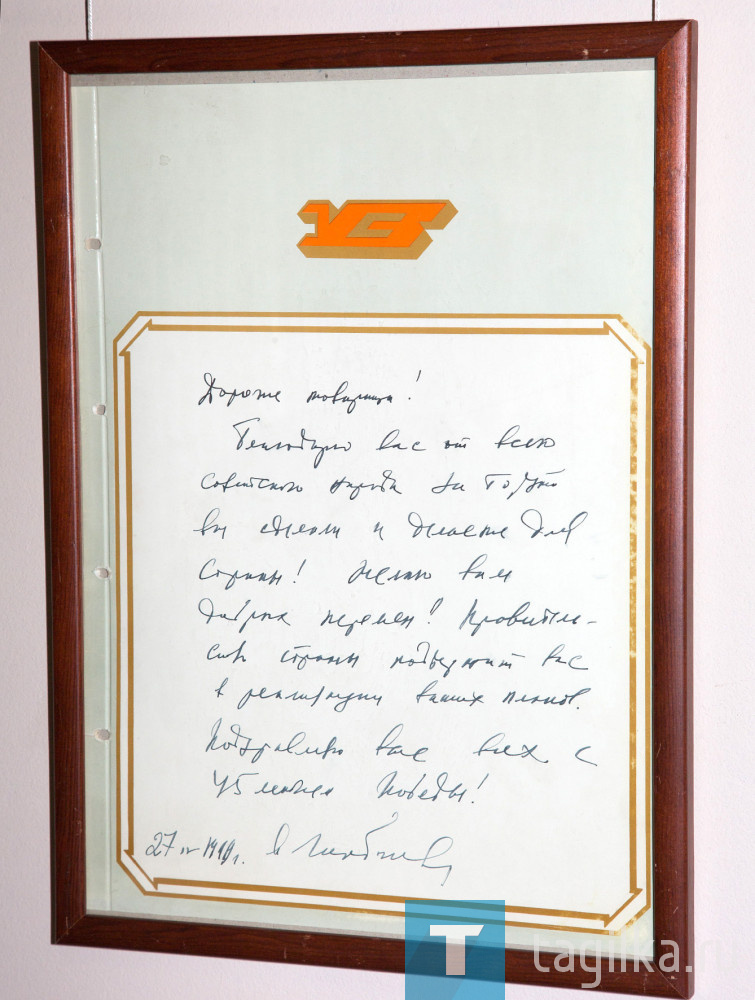 УВЗ
Дорогие товарищи!
Благодарю вас от всего
советского народа за то, что
вы сделали и делаете для
страны! Желаю вам
добрых перемен! Правитель-
ство страны поддержит вас
в реализации ваших планов.
Поздравляю вас всех с
45 летием Победы!
27 IV 1990 г.
T tagilka.r